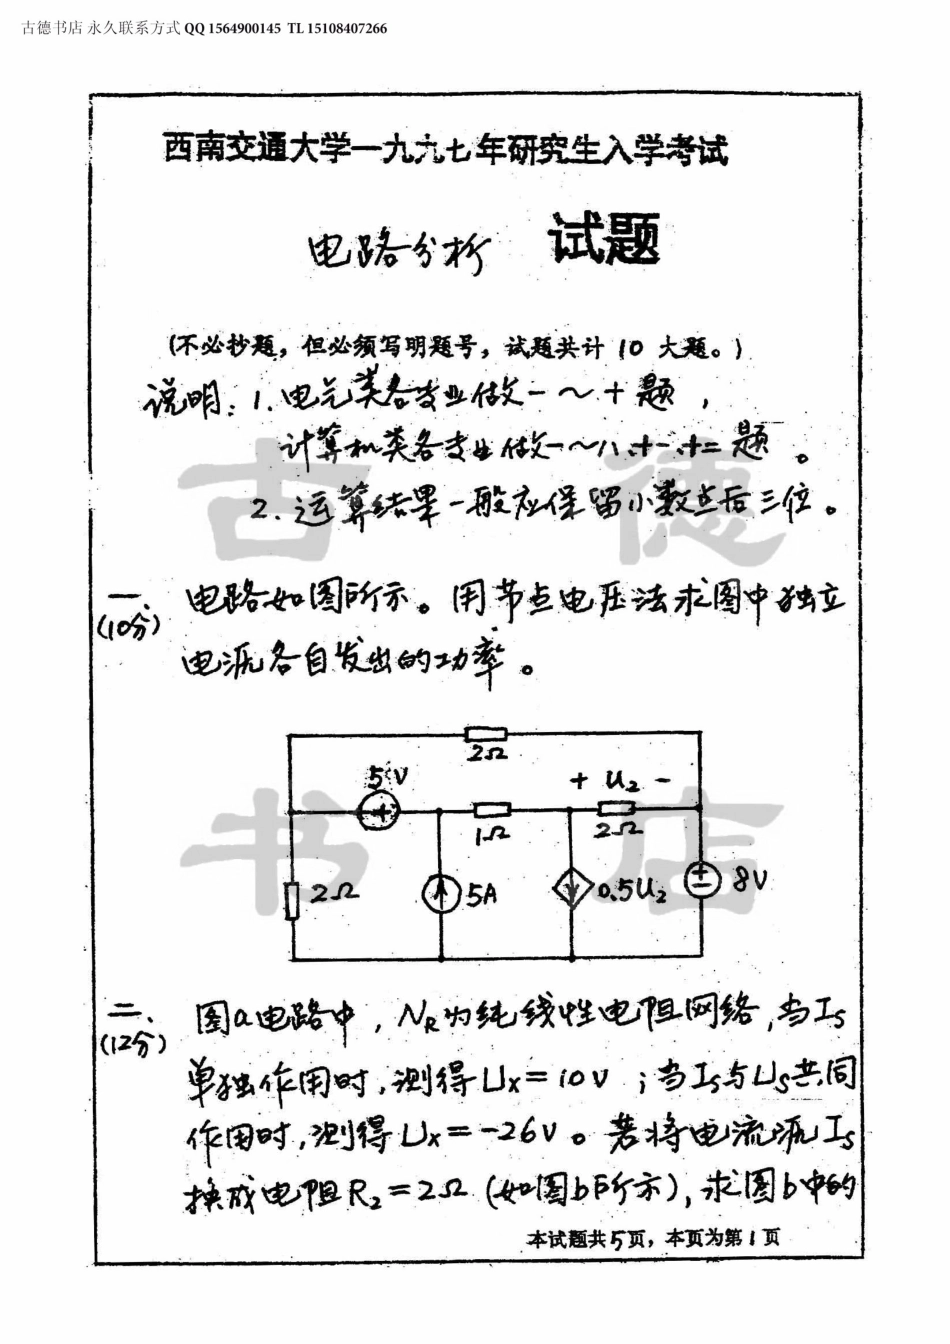 古德书店 永久联系方式 QQ 1564900145 TL 15108407266
西南交通大学一九九七年研究生入学考试
电路分析 试题
(不必抄题，但必须写明题号，试题共计 10 大题。)
说明：1. 电气类各专业做一～十题，
计算机类各专业做一～八、十一、十二题。
2. 运算结果一般应保留小数点后三位。
一、 电路如图所示。用节点电压法求图中独立
(10分)
电源各自发出的功率。
2Ω
5V
+ U₂ -
1Ω
2Ω
2Ω
5A
0.5U₂
8V
二、 图a电路中，N_R为纯线性电阻网络，当I_S
(12分)
单独作用时，测得U_X=10V；当I_S与U_S共同
作用时，测得U_X=-26V。若将电流源I_S
换成电阻R₂=2Ω (如图b所示)，求图b中的
本试题共5页，本页为第1页
古德
书店